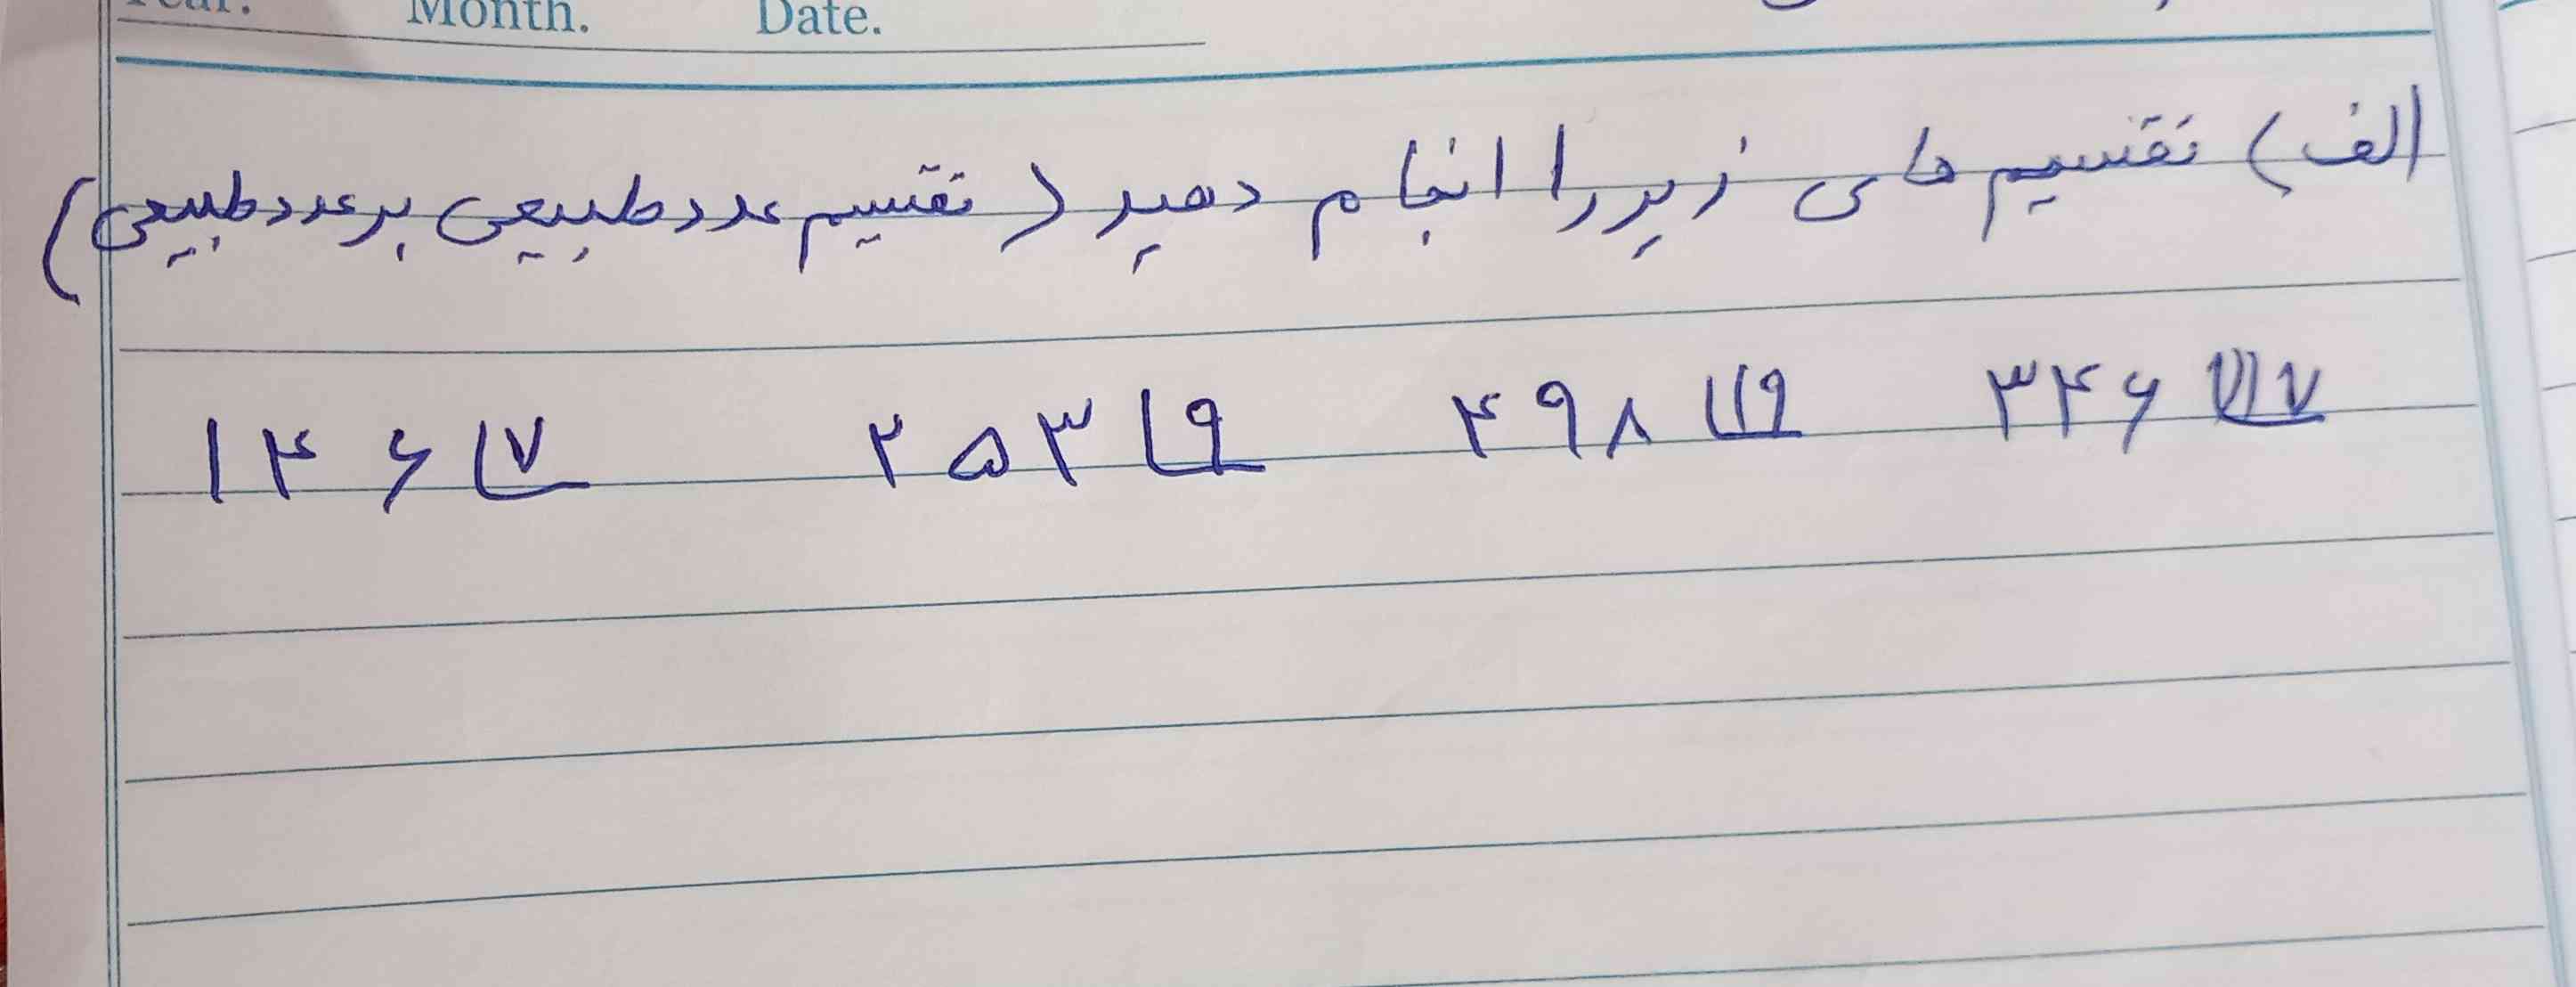 Year. Month. Date.
الف) تقسیم های زیر را انجام دهید (تقسیم عدد طبیعی بر عدد طبیعی)
۱۴۶ ۷ ۲۵۳ ۹ ۴۹۸ ۱۹ ۳۴۶ ۱۷